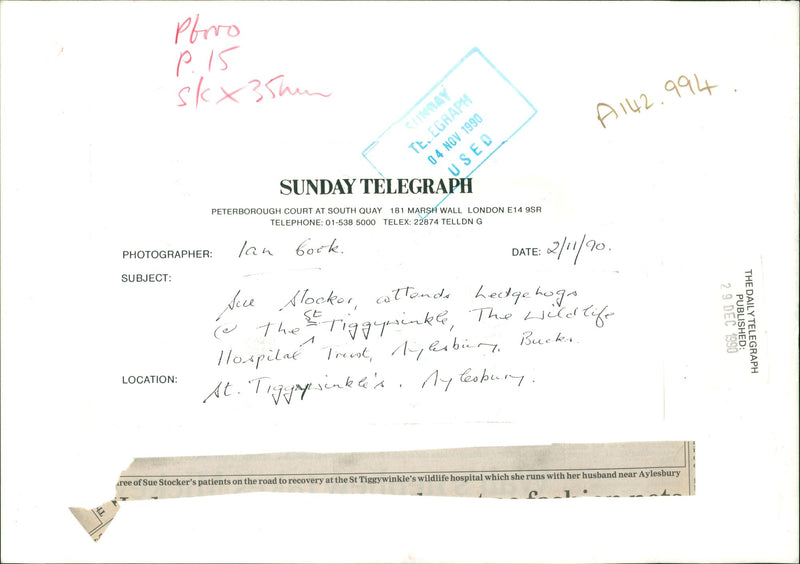 P.15
SK X 35mm
A142.994.
SUNDAY
TELEGRAPH
04 NOV 1990
USED
SUNDAY TELEGRAPH
PETERBOROUGH COURT AT SOUTH QUAY 181 MARSH WALL LONDON E14 9SR
TELEPHONE: 01-538 5000 TELEX: 22874 TELLDN G
PHOTOGRAPHER: Ian Cook. DATE: 2/11/90.
SUBJECT:
Sue Stocker, attends hedgehogs
@ the St Tiggywinkle, The Wildlife
Hospital Trust, Aylesbury, Bucks.
LOCATION: St. Tiggywinkle's. Aylesbury.
THE DAILY TELEGRAPH
PUBLISHED:
29 DEC 1990
ree of Sue Stocker's patients on the road to recovery at the St Tiggywinkle's wildlife hospital which she runs with her husband near Aylesbury